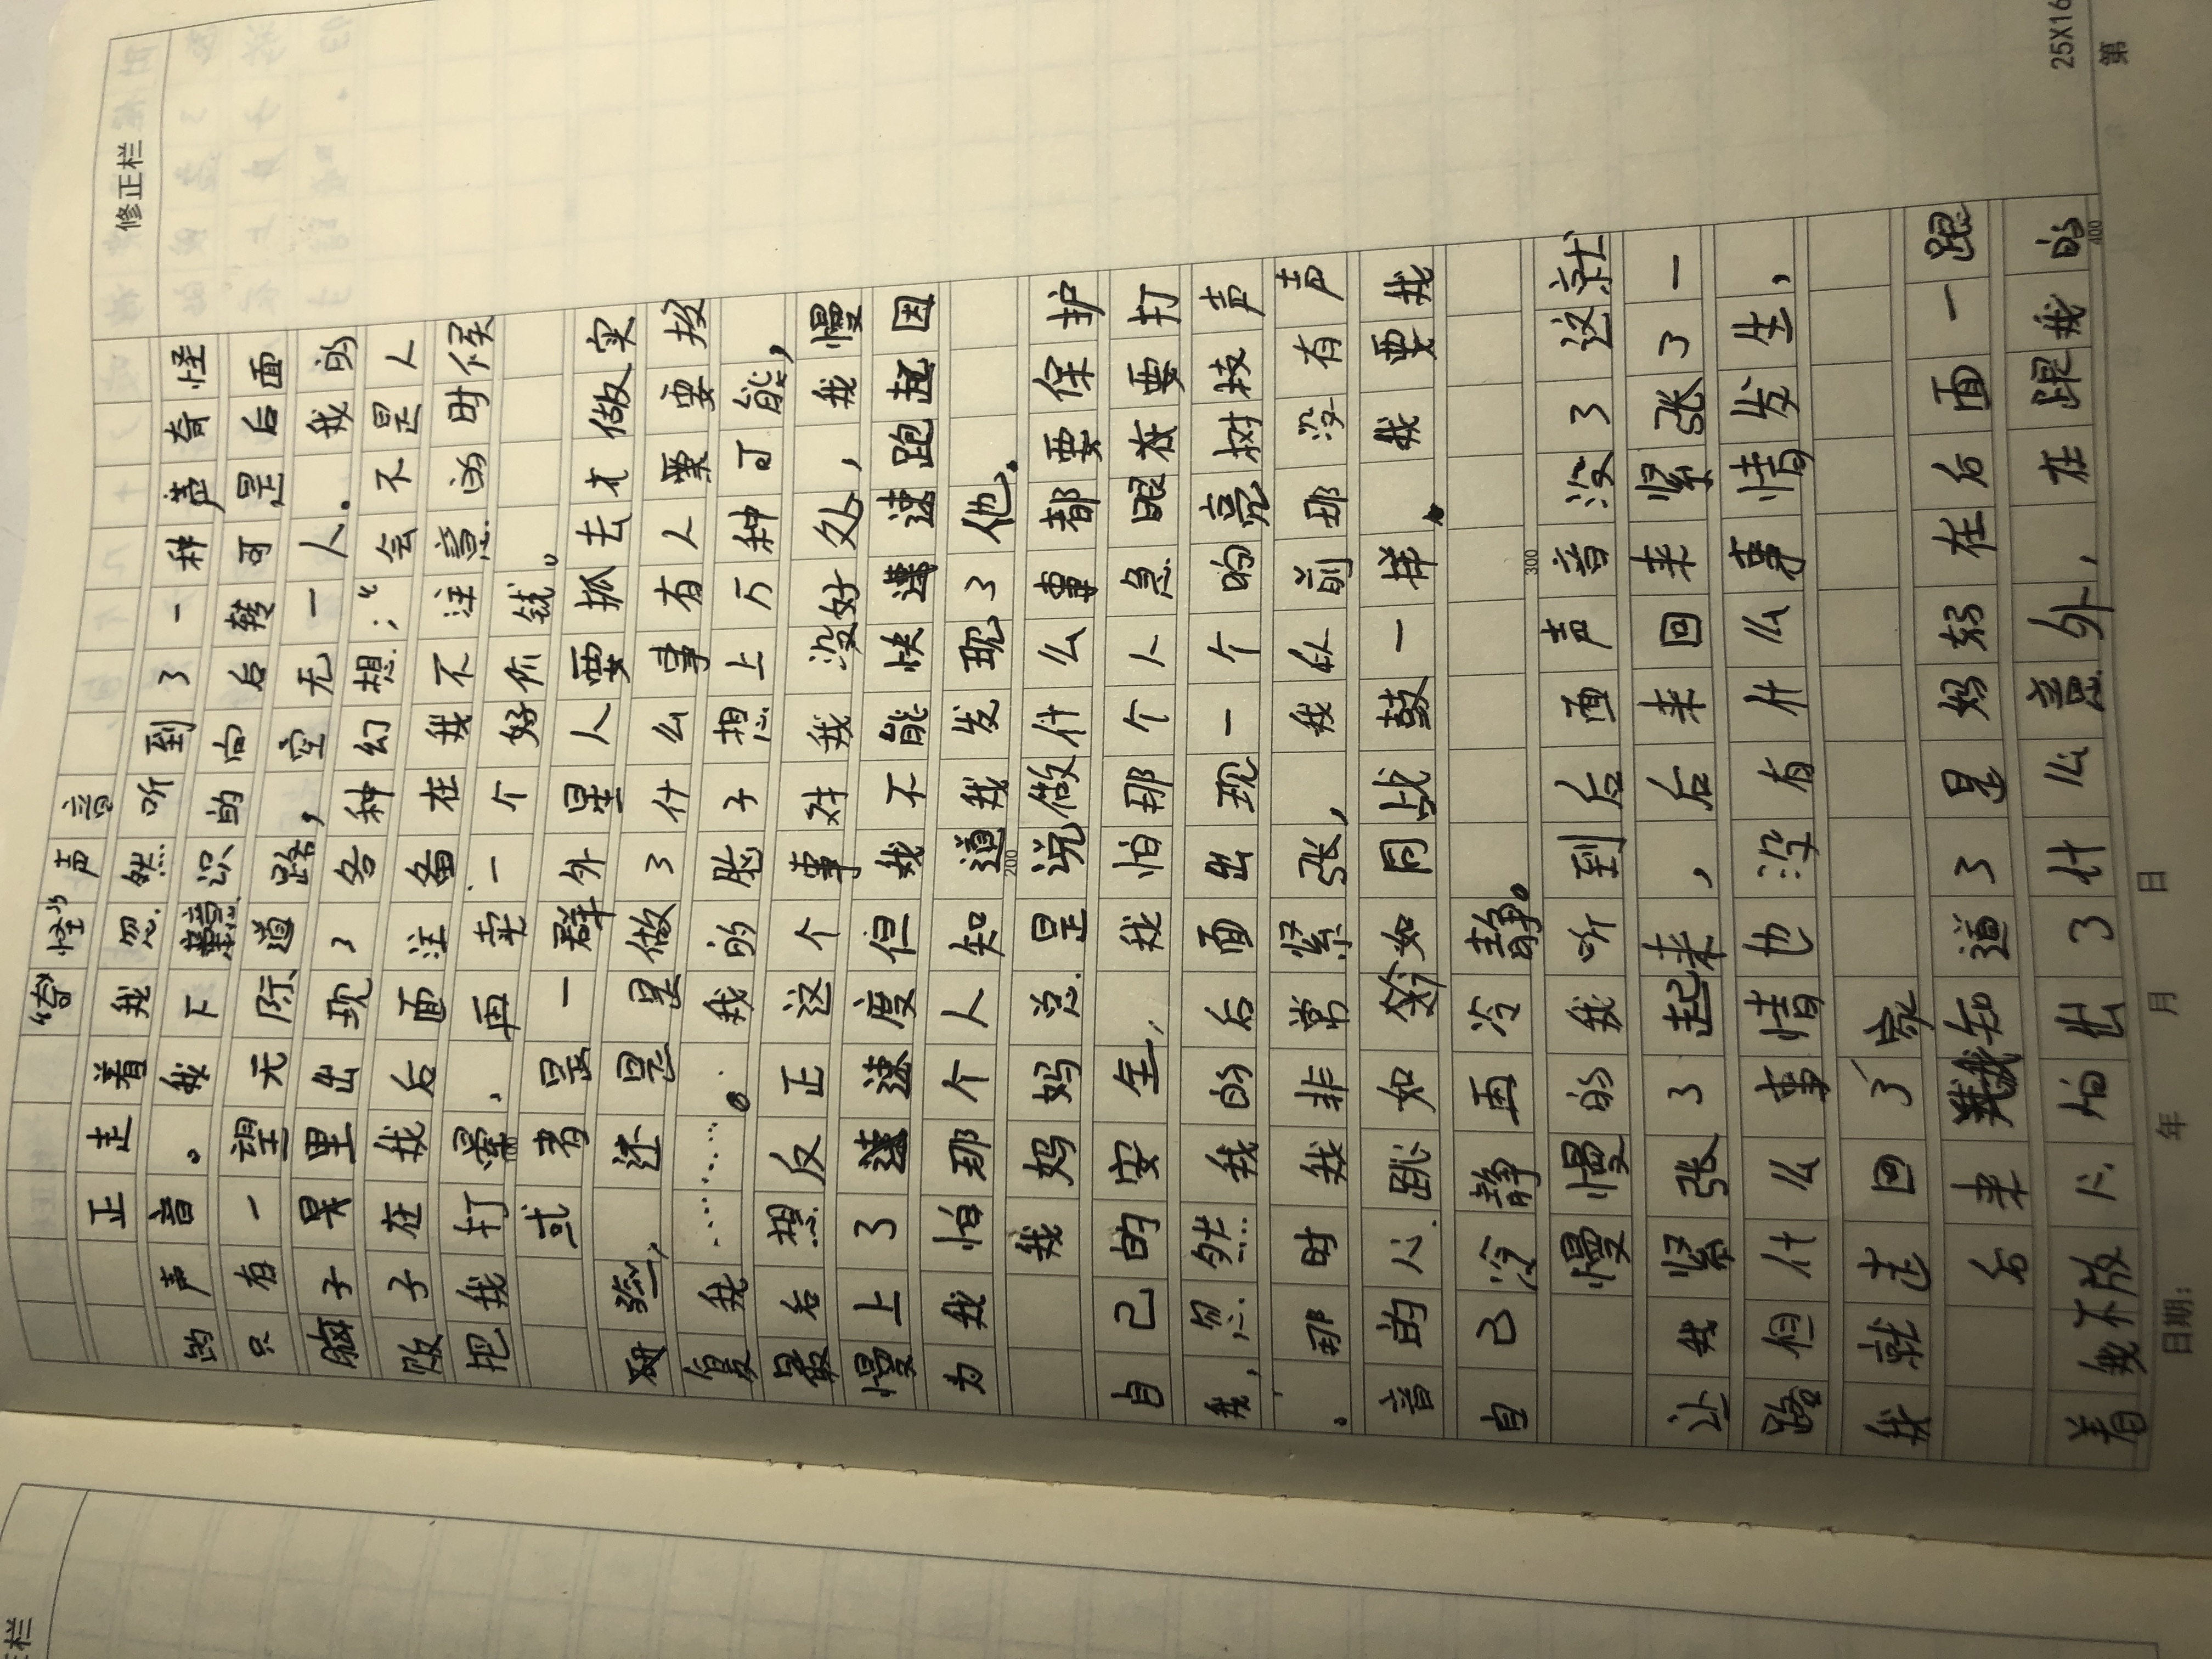 “奇怪”声音
正走着我忽然听到了一种奇怪
的声音。我下意识的向后转可是后面
只有一望无际道路，空无一人。我的
脑子里出现了各种幻想：“会不是人
贩子在我后面注备在我不注意的时候
把我打晕，再卖一个好价钱。
或者是一群外星人要抓去才做实
验，还是是做了什么事有人要报
复我……。我的脑子想上万种可能，
最后想反正这个事对我没好处，我慢
慢上了速度但我不能快速跑起因
为我怕那个人知道我发现了他。
我妈妈总是说做什么事都要保护
自己的安全，我怕那个人急眼在要打
我，忽然我的后面出现一个响亮树枝声
。那时我非常紧张，我从前那没有声
音的心跳如铃如同战鼓一样。我要我
自己冷静再冷静。
慢慢的我听到后面声音没了这就
让我紧张了起来，后来回来紧张了一
路但什么事情也没有什么事情发生，
我就走回了家
后来我知道了是妈妈在后面一跟
着我不放心怕出了什么意外，在跟我的
修正栏
200
300
400
25X16
第
日期： 年 月 日